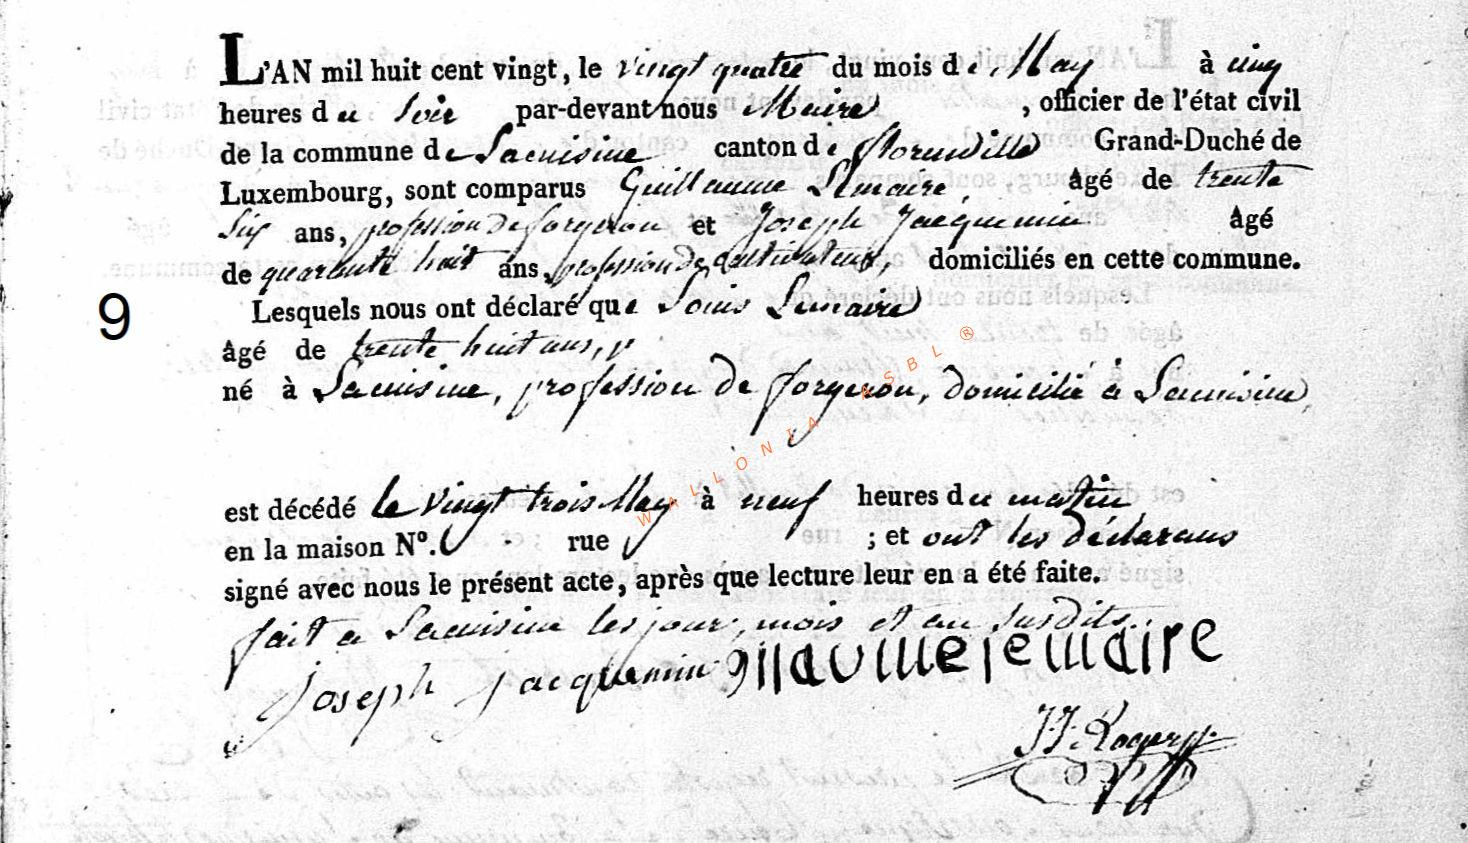 L'AN mil huit cent vingt, le vingt quatre du mois de May à cinq
heures du soir par-devant nous Maire, officier de l'état civil
de la commune de Lacuisine canton de florenville Grand-Duché de
Luxembourg, sont comparus Guillaume Lemaire âgé de trente
Six ans, profession de forgeron et Joseph Jacquemin âgé
de quarante huit ans, profession de Cultivateur, domiciliés en cette commune.
9
Lesquels nous ont déclaré que Louis Lemaire
âgé de trente huit ans,
né à Lacuisine, profession de forgeron, domicilié a Lacuisine,
est décédé le vingt trois May à neuf heures du matin
en la maison N°. rue ; et ont les déclarans
signé avec nous le présent acte, après que lecture leur en a été faite.
fait a Lacuisine les jour, mois et an susdits.
Joseph Jacquemin lemaire
J.J. 
WALLONIA ASBL ®